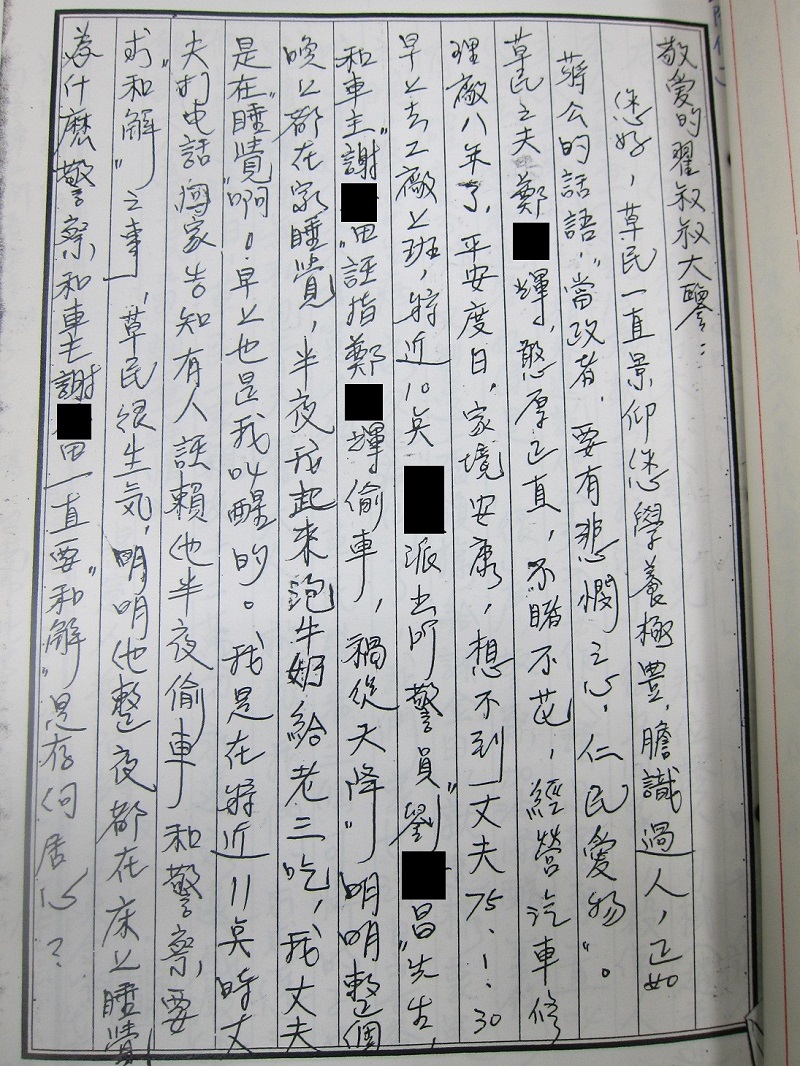 敬愛的翟叔叔大鑒：
您好，草民一直景仰您學養極豐，膽識過人，正如
蔣公的話語，"當政者，要有悲憫之心，仁民愛物"。
草民之夫鄭輝，憨厚正直，不賭不花，經營汽車修
理廠八年了，平安度日，家境安康，想不到丈夫75.1.30
早上去工廠上班，將近10點派出所警員"劉昌"先生，
和車主"謝田"誣指鄭輝偷車，禍從天降"明明整個
晚上都在家睡覺，半夜我起來泡牛奶給老三吃，我丈夫
是在"睡覺"啊。早上也是我叫醒的。我是在將近11點時丈
夫打电話回家告知有人誣賴他半夜偷車，和警察，要
求"和解"之事，草民很生気，明明他整夜都在床上睡覺
為什麼警察，和車主謝田一直要"和解"是存何居心？